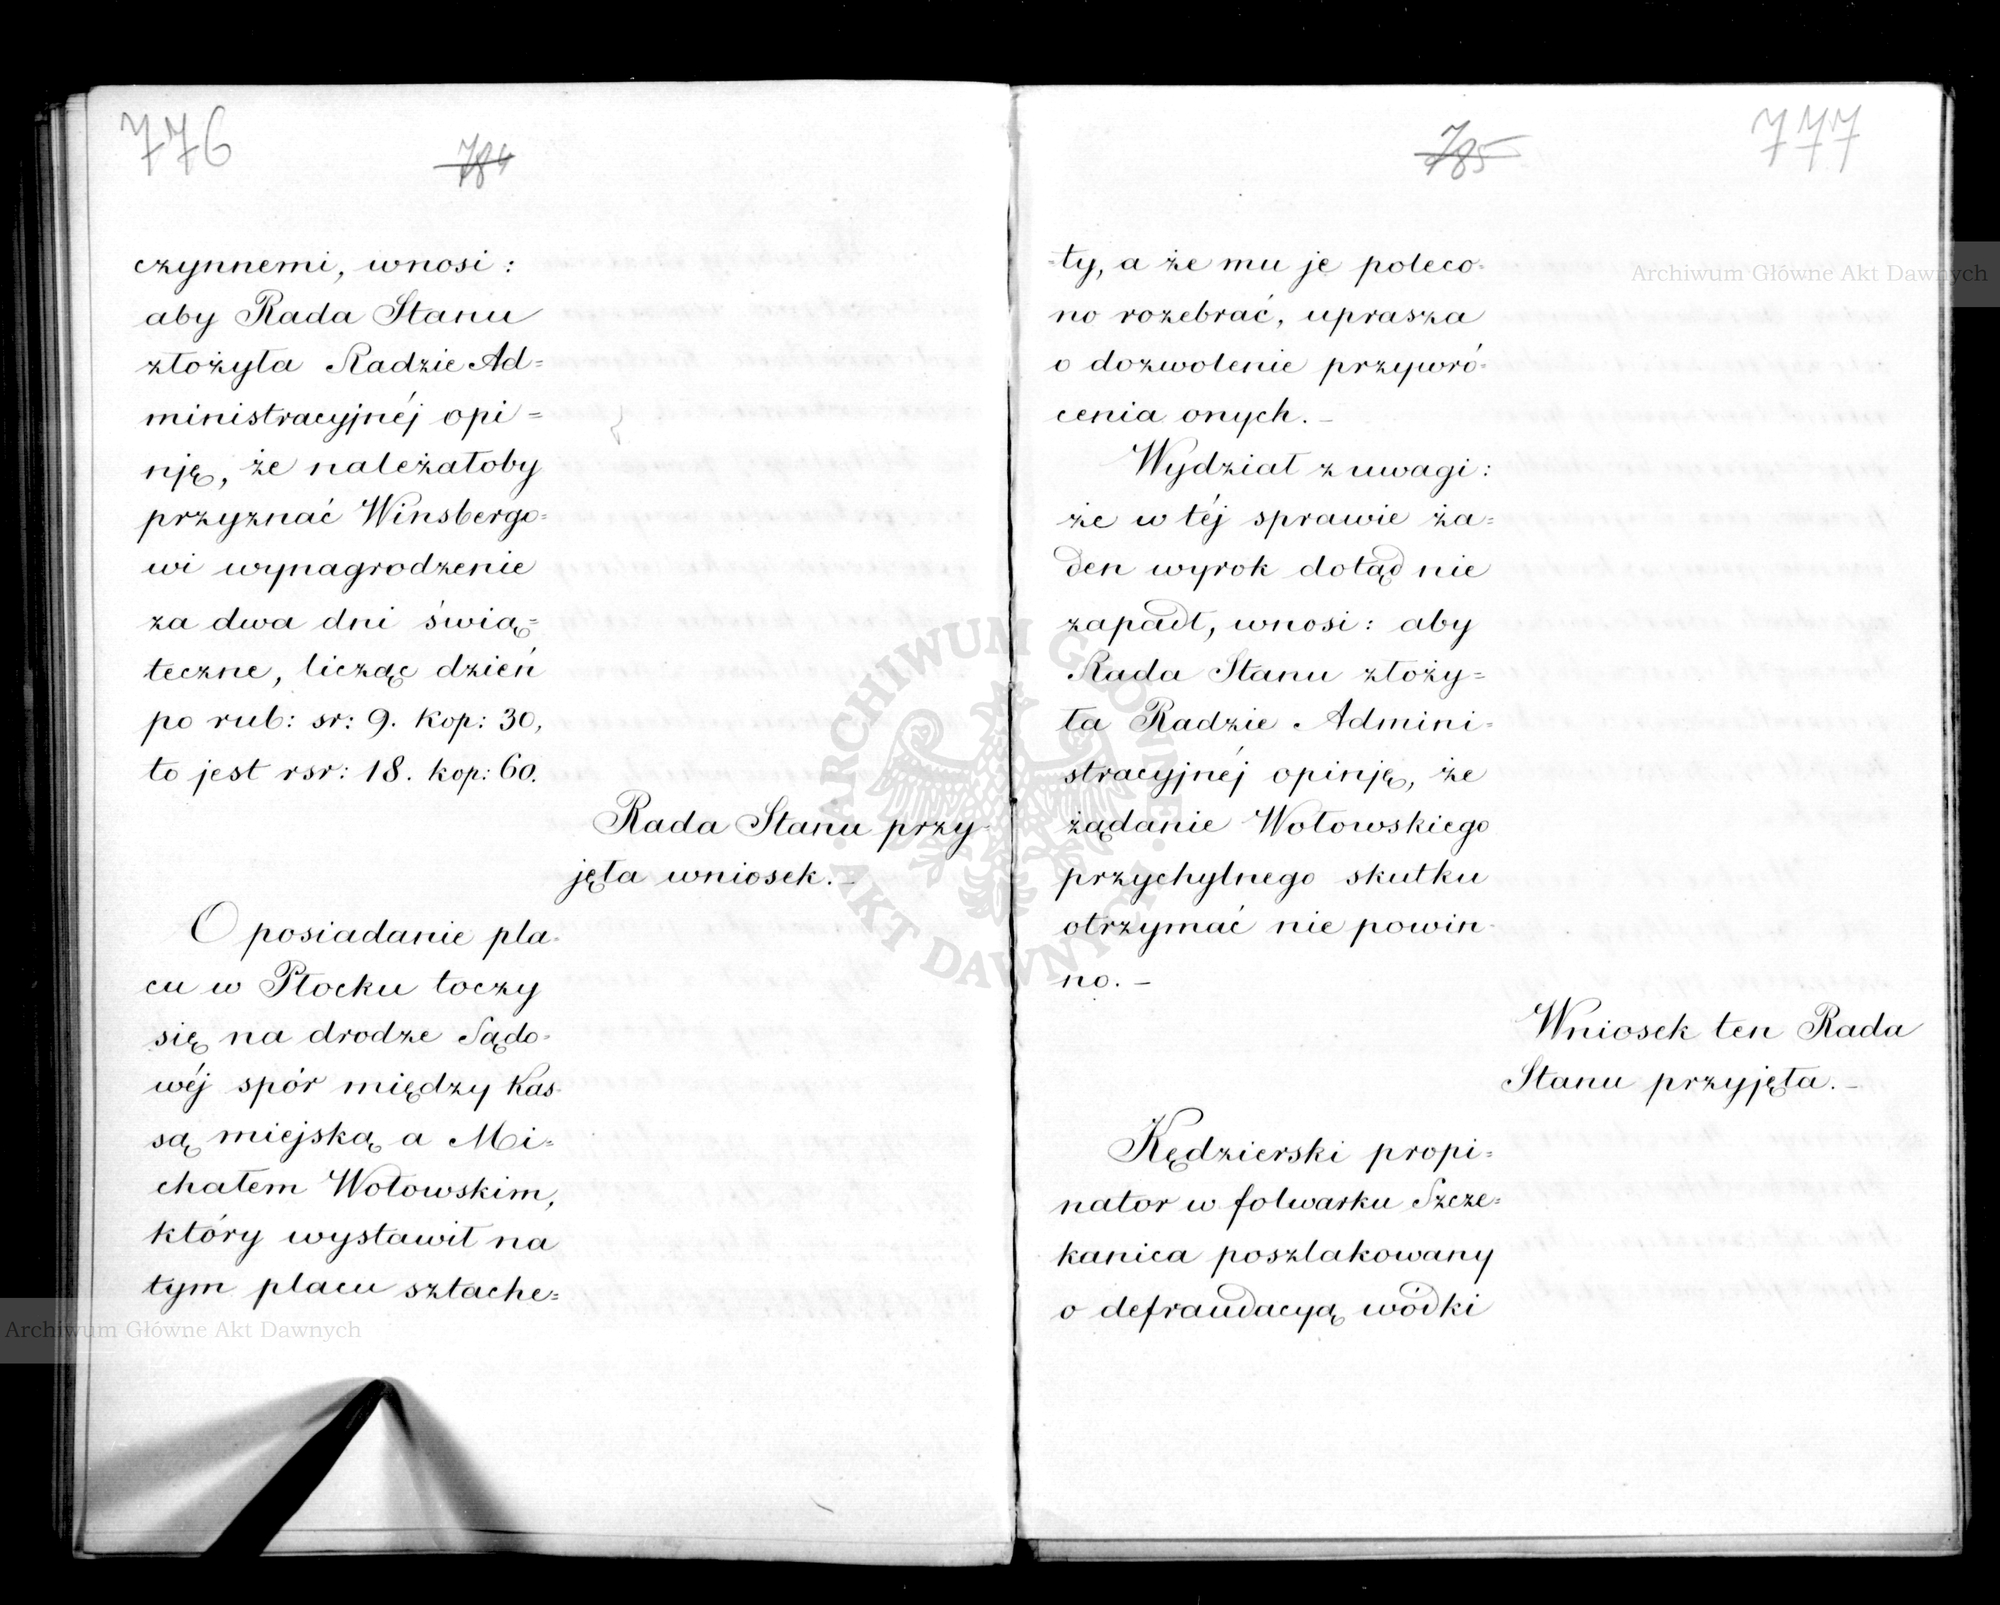 776
784
czynnemi, wnosi:
aby Rada Stanu
złożyła Radzie Ad=
ministracyjnéj opi=
nję, że należałoby
przyznać Winsbergo-
wi wynagrodzenie
za dwa dni świą=
teczne, licząc dzień
po rub: sr: 9. kop: 30,
to jest rsr: 18. kop: 60.
Rada Stanu przy-
jęła wniosek. –
O posiadanie pla-
cu w Płocku toczy
się na drodze Sądo-
wéj spór między Kas-
są miejską a Mi-
chałem Wołowskim,
który wystawił na
tym placu sztache=
785
777
-ty, a że mu je poleco-
no rozebrać, uprasza
o dozwolenie przywró-
cenia onych. –
Wydział z uwagi:
że w téj sprawie ża=
den wyrok dotąd nie
zapadł, wnosi: aby
Rada Stanu złoży-
ła Radzie Admini-
stracyjnéj opinję, że
żądanie Wołowskiego
przychylnego skutku
otrzymać nie powin-
no. –
Wniosek ten Rada
Stanu przyjęła. –
Kędzierski propi=
nator w folwarku Szcze=
kanica poszlakowany
o defraudacyą wódki
Archiwum Główne Akt Dawnych
Archiwum Główne Akt Dawnych
ARCHIWUM GŁÓWNE AKT DAWNYCH